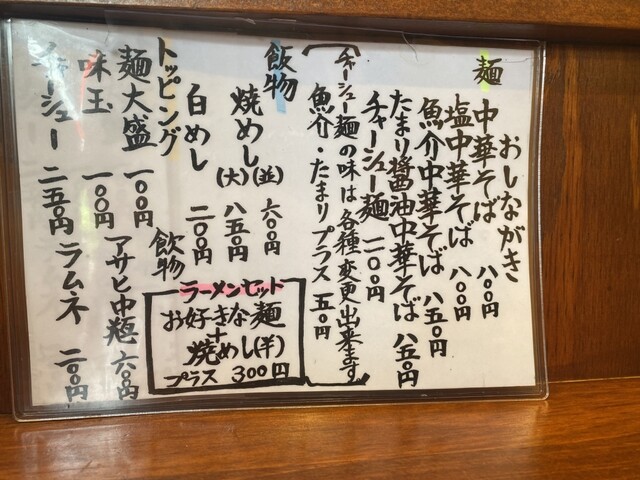 おしながき
麺
中華そば 八〇〇円
塩中華そば 八〇〇円
魚介中華そば 八五〇円
たまり醤油中華そば 八五〇円
チャーシュー麺 一一〇〇円
チャーシュー麺の味は各種変更出来ます
魚介・たまりプラス 五〇円
飯物
焼めし(並) 六〇〇円
(大) 八五〇円
白めし 二〇〇円
トッピング
麺大盛 一〇〇円
味玉 一〇〇円
チャーシュー 二五〇円
ラーメンセット
お好きな麺
+
焼めし(半)
プラス 300円
飲物
アサヒ中瓶 六〇〇円
ラムネ 二〇〇円